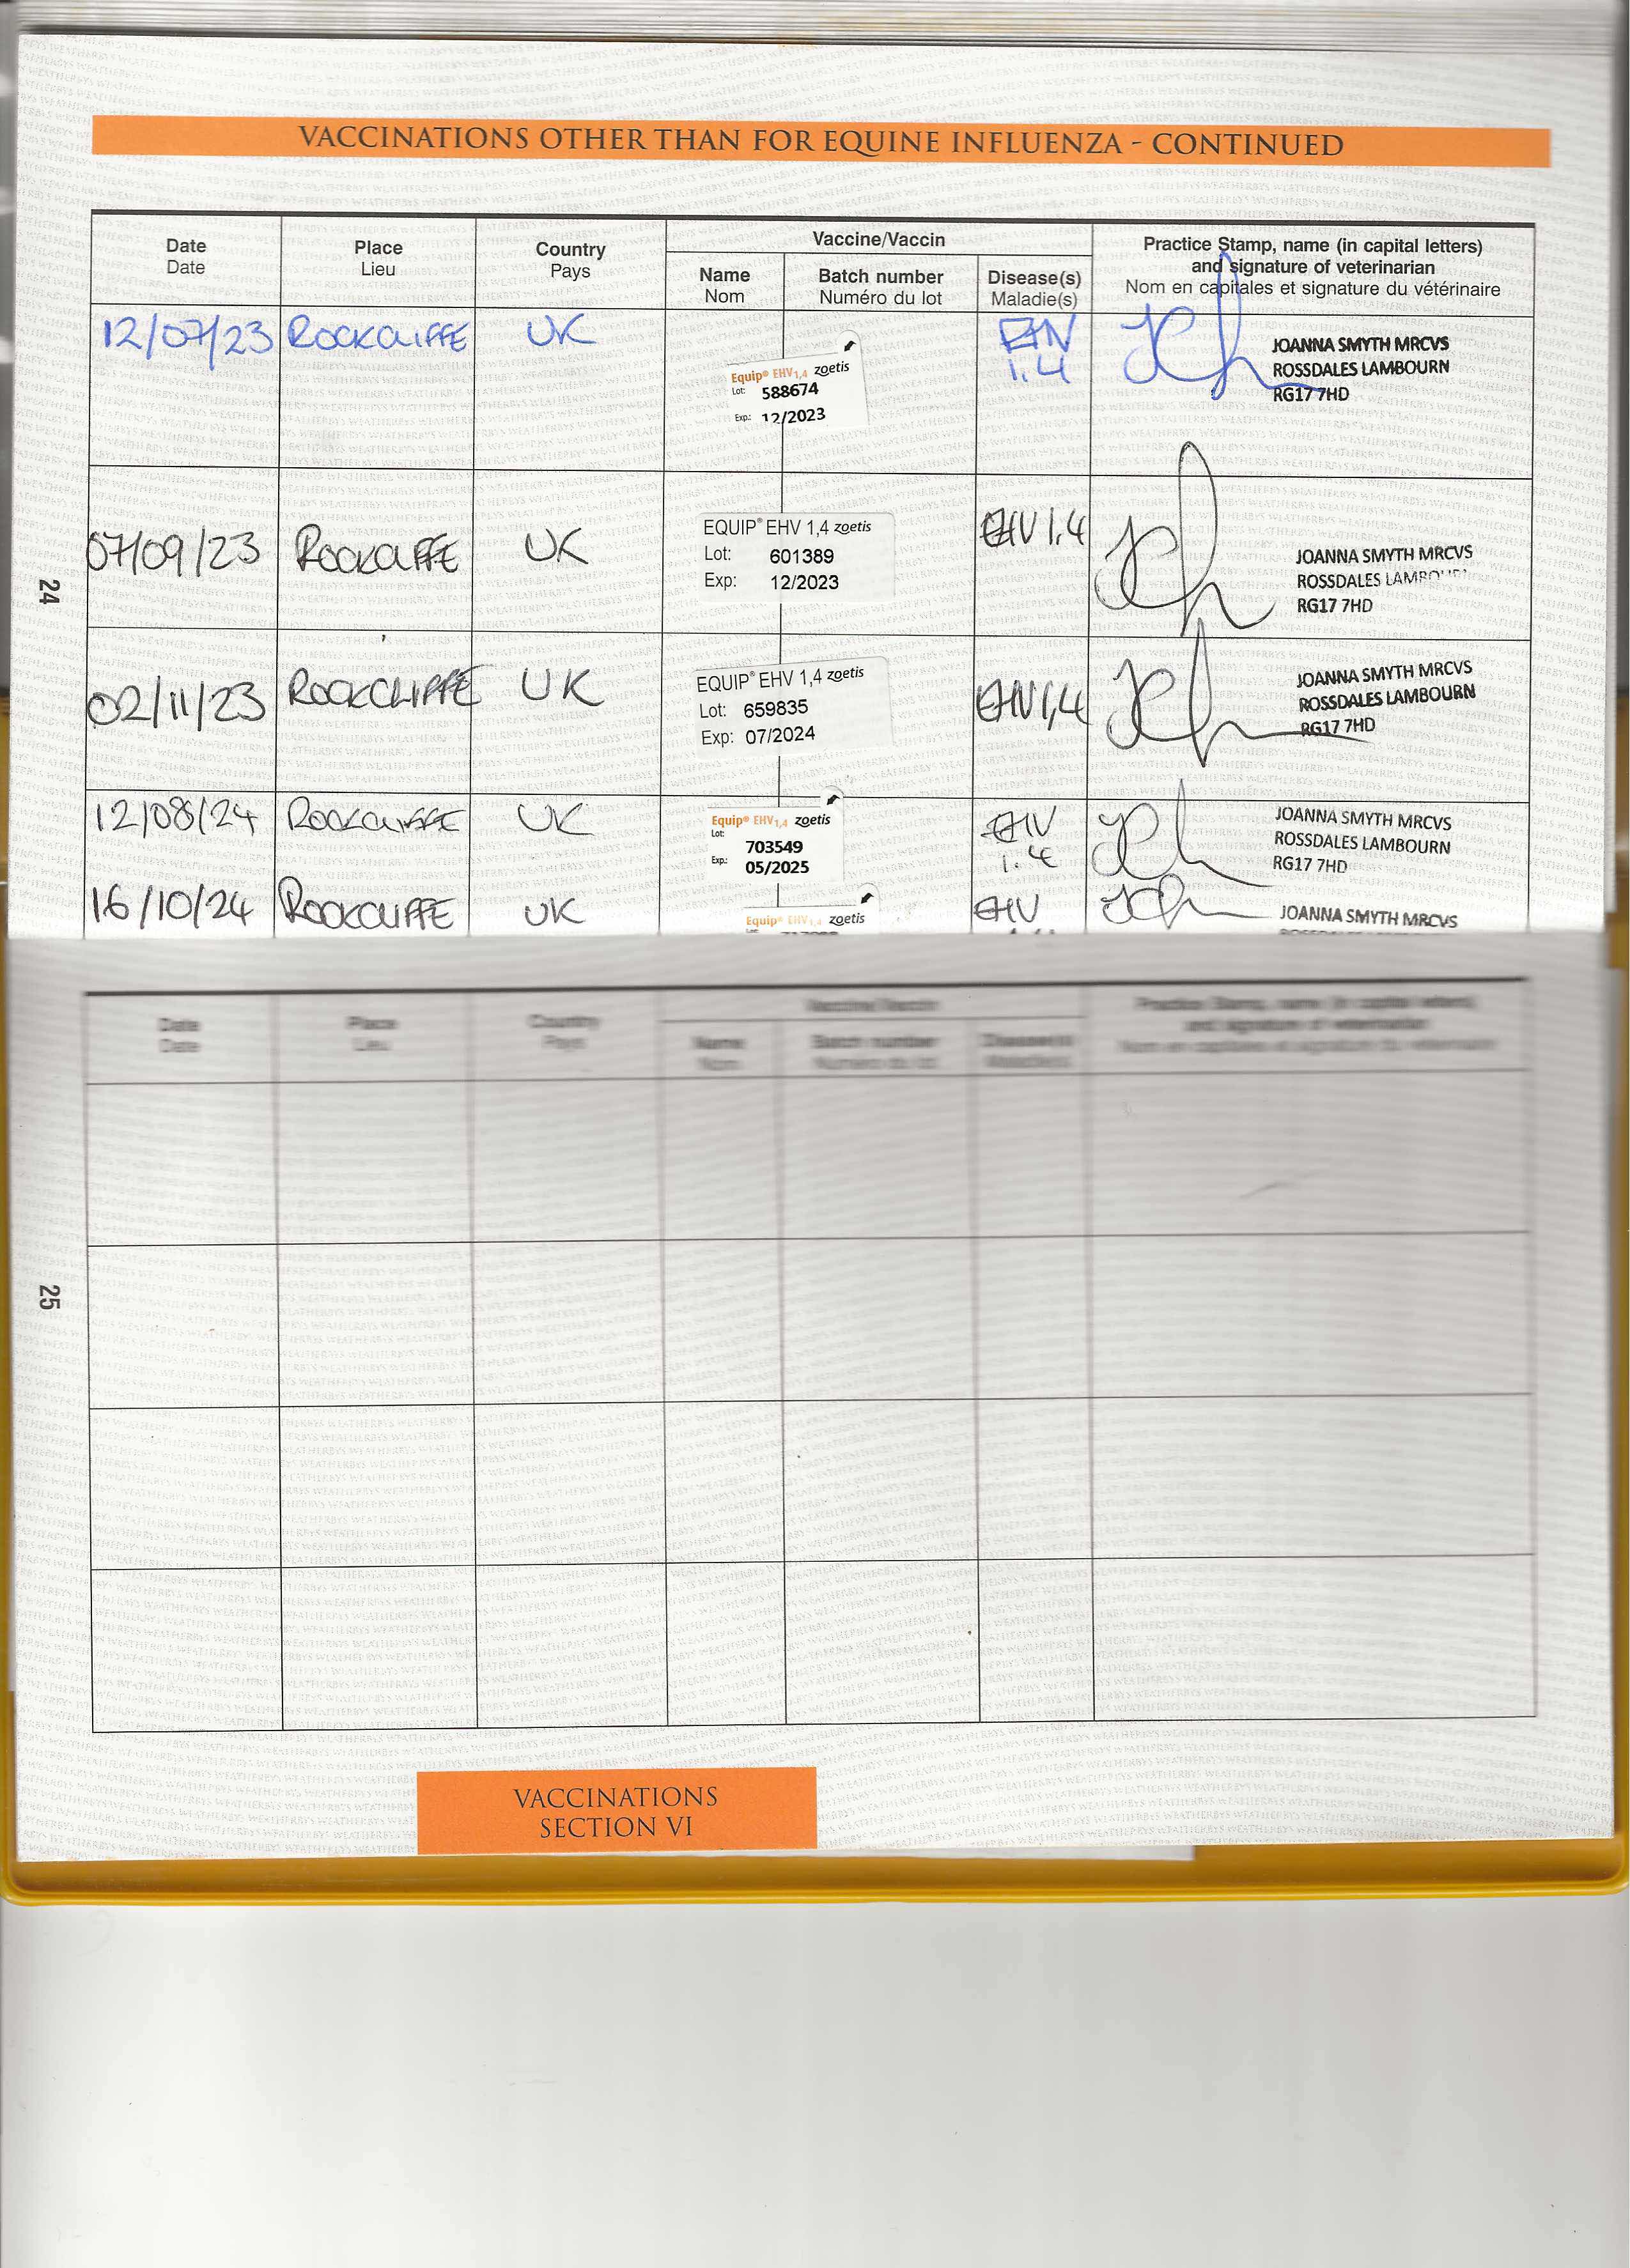 VACCINATIONS OTHER THAN FOR EQUINE INFLUENZA - CONTINUED
Date
Date
Place
Lieu
Country
Pays
Vaccine/Vaccin
Name
Nom
Batch number
Numéro du lot
Disease(s)
Maladie(s)
Practice Stamp, name (in capital letters)
and signature of veterinarian
Nom en capitales et signature du vétérinaire
12/07/23 ROCKCLIFFE UK
Equip® EHV1,4 zoetis
Lot: 588674
Exp.: 12/2023
EHV
1.4
JOANNA SMYTH MRCVS
ROSSDALES LAMBOURN
RG17 7HD
07/09/23 ROCKCLIFFE UK
EQUIP® EHV 1,4 zoetis
Lot: 601389
Exp: 12/2023
EHV 1.4
JOANNA SMYTH MRCVS
ROSSDALES LAMBOURN
RG17 7HD
24
02/11/23 ROCKCLIFFE UK
EQUIP® EHV 1,4 zoetis
Lot: 659835
Exp: 07/2024
EHV 1,4
JOANNA SMYTH MRCVS
ROSSDALES LAMBOURN
RG17 7HD
12/08/24 ROCKCLIFFE UK
Equip® EHV1,4 zoetis
Lot:
703549
Exp.:
05/2025
EHV
1.4
JOANNA SMYTH MRCVS
ROSSDALES LAMBOURN
RG17 7HD
16/10/24 ROCKCLIFFE UK
Equip® EHV1,4 zoetis
EHV
JOANNA SMYTH MRCVS
Date
Date
Place
Lieu
Country
Pays
Vaccine/Vaccin
Name
Nom
Batch number
Numéro du lot
Disease(s)
Maladie(s)
Practice Stamp, name (in capital letters)
and signature of veterinarian
Nom en capitales et signature du vétérinaire
25
VACCINATIONS
SECTION VI